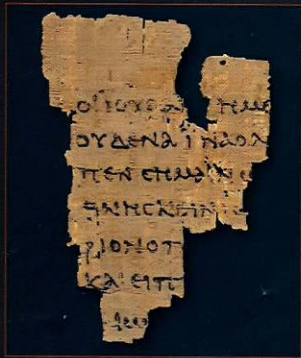 ΟΙ ΙΟΥΔΑΙ ΗΜΙ
ΟΥΔΕΝΑ ΙΝΑ Ο Λ
ΠΕΝ ΣΗΜΑΙΝΩ
ΘΝΗΣΚΕΙΝ ΙΣ
ΡΙΟΝ Ο Π
ΚΑΙ ΕΙΠ
ΙΩ